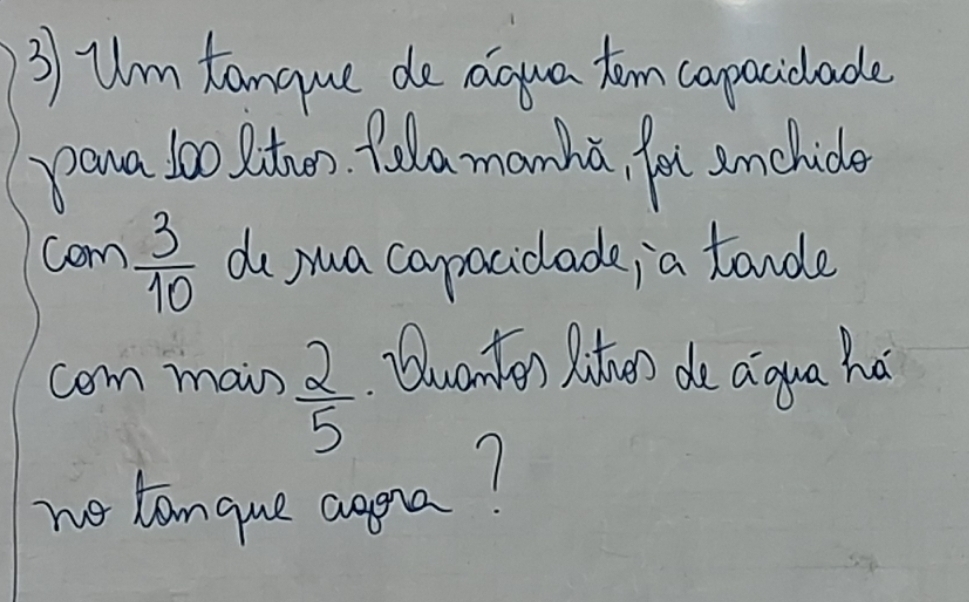 3) Um tanque de água tem capacidade
para 100 litros. Pela manhã, foi enchido
com 3/10 de sua capacidade; à tarde
com mais 2/5. Quantos litros de água há
no tanque agora?